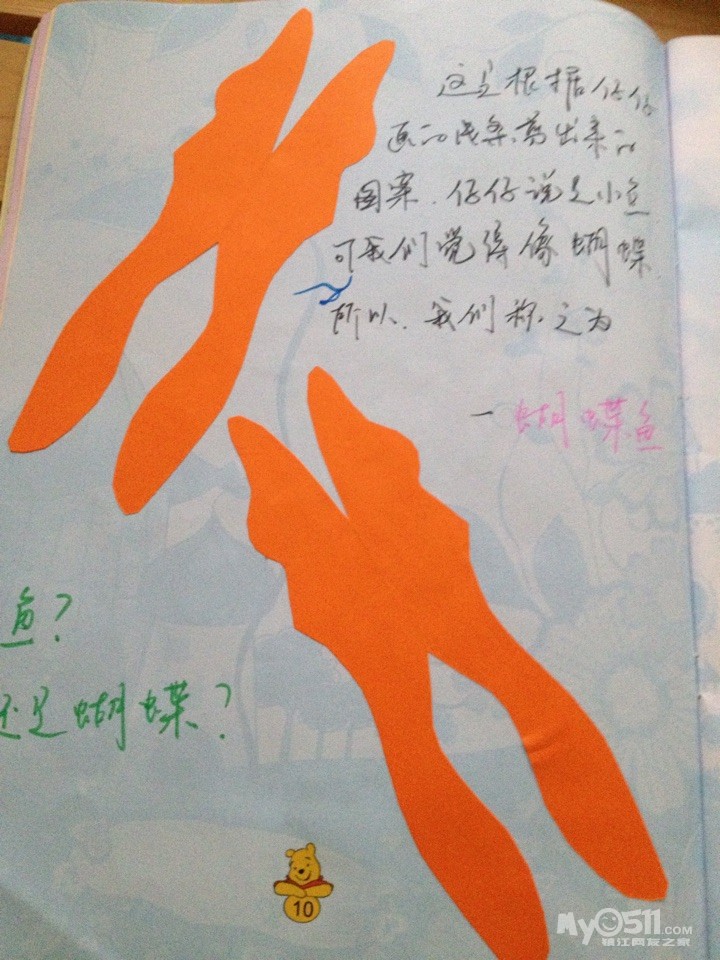 这是根据仔仔
画的线条剪出来的
图案.仔仔说是小鱼
可我们觉得像蝴蝶.
所以.我们称之为
—蝴蝶鱼
鱼?
还是蝴蝶?
10
My0511.COM
镇江网友之家